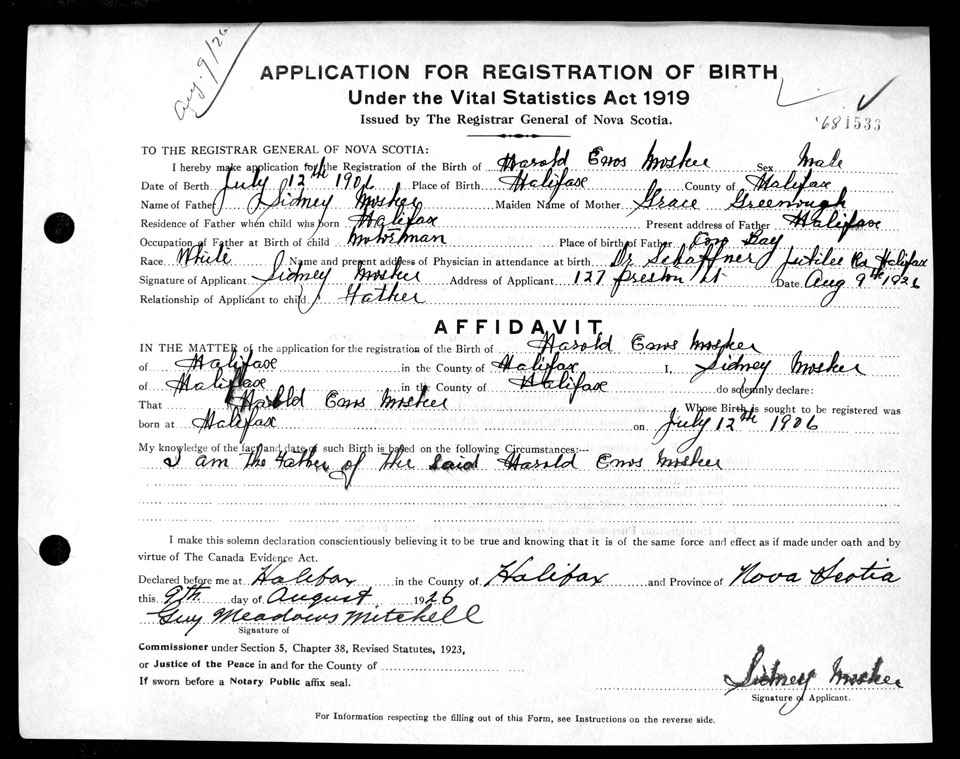 Aug. 9/26
APPLICATION FOR REGISTRATION OF BIRTH
Under the Vital Statistics Act 1919
Issued by The Registrar General of Nova Scotia.
681533
TO THE REGISTRAR GENERAL OF NOVA SCOTIA:
I hereby make application for the Registration of the Birth of Harold Enos Mosher Sex Male
Date of Berth July 12th 1906 Place of Birth Halifax County of Halifax
Name of Father Sidney Mosher Maiden Name of Mother Grace Greenough
Residence of Father when child was born Halifax Present address of Father Halifax
Occupation of Father at Birth of child Motorman Place of birth of Father Cow Bay
Race White Name and present address of Physician in attendance at birth Dr Schaffner Jubilee Rd Halifax
Signature of Applicant Sidney Mosher Address of Applicant 127 Preston St Date Aug 9th 1926
Relationship of Applicant to child Father
AFFIDAVIT
IN THE MATTER of the application for the registration of the Birth of Harold Enos Mosher
of Halifax in the County of Halifax I, Sidney Mosher
of Halifax in the County of Halifax do solemnly declare:
That Harold Enos Mosher Whose Birth is sought to be registered was
born at Halifax on July 12th 1906
My knowledge of the fact and date of such Birth is based on the following Circumstances:--
I am the Father of the said Harold Enos Mosher
I make this solemn declaration conscientiously believing it to be true and knowing that it is of the same force and effect as if made under oath and by
virtue of The Canada Evidence Act.
Declared before me at Halifax in the County of Halifax and Province of Nova Scotia
this 9th day of August 1926
Guy Meadows Mitchell
Signature of
Commissioner under Section 5, Chapter 38, Revised Statutes, 1923,
or Justice of the Peace in and for the County of
If sworn before a Notary Public affix seal.
Sidney Mosher
Signature of Applicant.
For Information respecting the filling out of this Form, see Instructions on the reverse side.